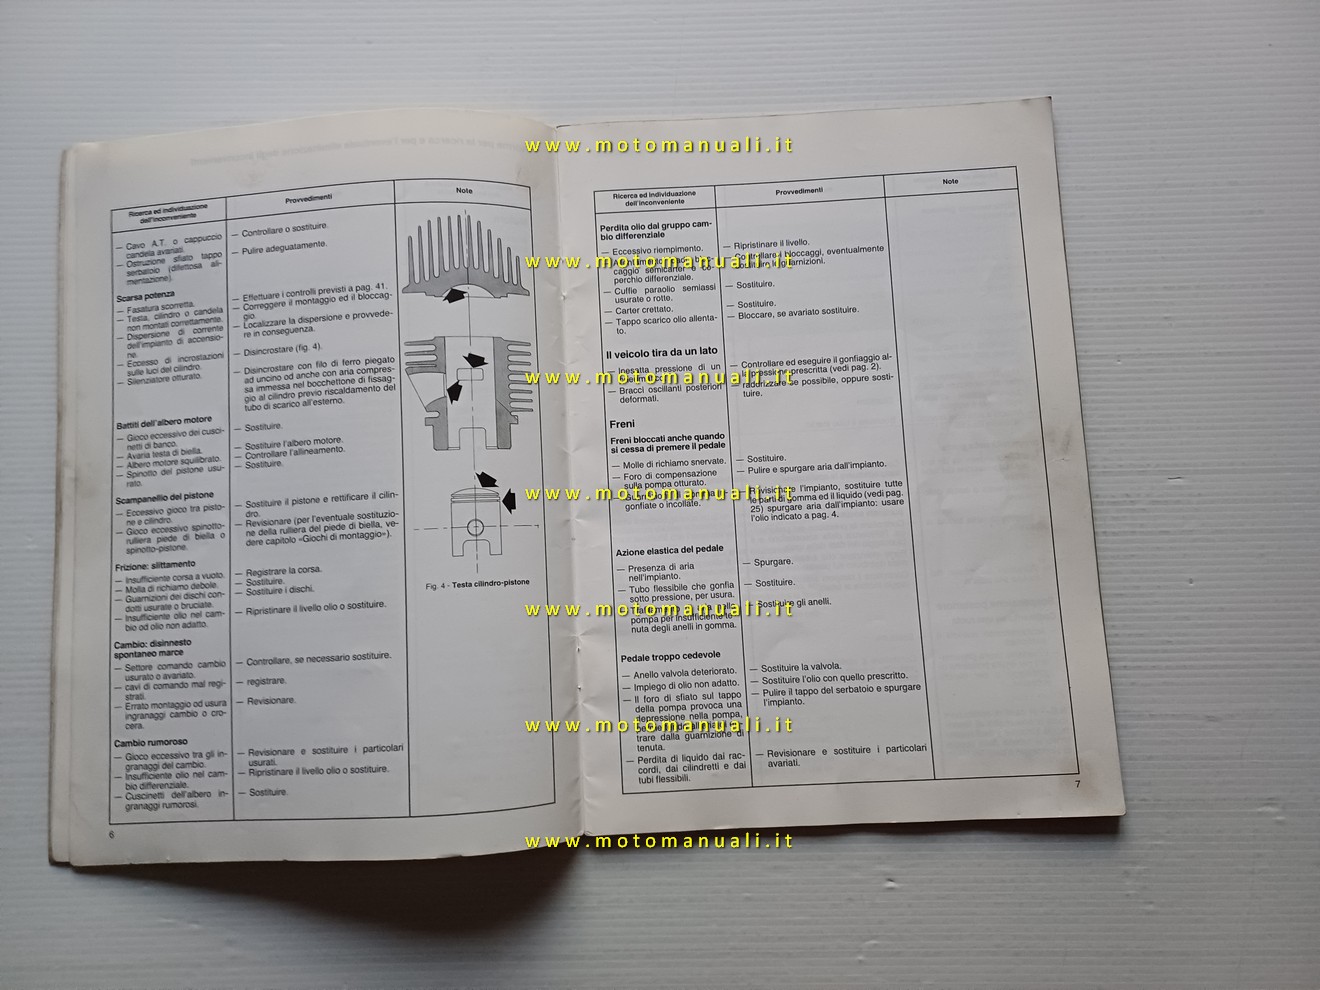 www.motomanuali.it
Ricerca ed individuazione
dell'inconveniente
Provvedimenti
Note
— Cavo A.T. o cappuccio
candela avariati.
— Ostruzione sfiato tappo
serbatoio (difettosa ali-
mentazione).
— Controllare o sostituire.
— Pulire adeguatamente.
Scarsa potenza
— Fasatura scorretta.
— Testa, cilindro o candela
non montati correttamente.
— Dispersione di corrente
dell'impianto di accensio-
ne.
— Eccesso di incrostazioni
sulle luci del cilindro.
— Silenziatore otturato.
— Effettuare i controlli previsti a pag. 41.
— Correggere il montaggio ed il bloccag-
gio.
— Localizzare la dispersione e provvede-
re in conseguenza.
— Disincrostare (fig. 4).
— Disincrostare con filo di ferro piegato
ad uncino od anche con aria compres-
sa immessa nel bocchettone di fissag-
gio al cilindro previo riscaldamento del
tubo di scarico all'esterno.
Battiti dell'albero motore
— Gioco eccessivo dei cusci-
netti di banco.
— Avaria testa di biella.
— Albero motore squilibrato.
— Spinotto del pistone usu-
rato.
— Sostituire.
— Sostituire l'albero motore.
— Controllare l'allineamento.
— Sostituire.
Scampanellio del pistone
— Eccessivo gioco tra pisto-
ne e cilindro.
— Gioco eccessivo spinotto-
rulliera piede di biella o
spinotto-pistone.
— Sostituire il pistone e rettificare il cilin-
dro.
— Revisionare (per l'eventuale sostituzio-
ne della rulliera del piede di biella, ve-
dere capitolo «Giochi di montaggio»).
Frizione: slittamento
— Insufficiente corsa a vuoto.
— Molla di richiamo debole.
— Guarnizioni dei dischi con-
dotti usurate o bruciate.
— Insufficiente olio nel cam-
bio od olio non adatto.
— Registrare la corsa.
— Sostituire.
— Sostituire i dischi.
— Ripristinare il livello olio o sostituire.
Cambio: disinnesto
spontaneo marce
— Settore comando cambio
usurato o avariato.
— cavi di comando mal regi-
strati.
— Errato montaggio od usura
ingranaggi cambio o cro-
cera.
— Controllare, se necessario sostituire.
— registrare.
— Revisionare.
Cambio rumoroso
— Gioco eccessivo tra gli in-
granaggi del cambio.
— Insufficiente olio nel cam-
bio differenziale.
— Cuscinetti dell'albero in-
granaggi rumorosi.
— Revisionare e sostituire i particolari
usurati.
— Ripristinare il livello olio o sostituire.
— Sostituire.
Fig. 4 - Testa cilindro-pistone
6
Ricerca ed individuazione
dell'inconveniente
Provvedimenti
Note
Perdita olio dal gruppo cam-
bio differenziale
— Eccessivo riempimento.
caggio semicarter e co-
perchio differenziale.
— Cuffie paraolio semiassi
usurate o rotte.
— Carter crettato.
— Tappo scarico olio allenta-
to.
— Ripristinare il livello.
— Controllare i bloccaggi, eventualmente
sostituire le guarnizioni.
— Sostituire.
— Sostituire.
— Bloccare, se avariato sostituire.
www.motomanuali.it
Il veicolo tira da un lato
— Inesatta pressione di un
pneumatico.
— Bracci oscillanti posteriori
deformati.
— Controllare ed eseguire il gonfiaggio al-
la pressione prescritta (vedi pag. 2).
— raddrizzare se possibile, oppure sosti-
tuire.
www.motomanuali.it
Freni
Freni bloccati anche quando
si cessa di premere il pedale
— Molle di richiamo snervate.
— Foro di compensazione
sulla pompa otturato.
gonfiate o incollate.
— Sostituire.
— Pulire e spurgare aria dall'impianto.
— Revisionare l'impianto, sostituire tutte
le parti di gomma ed il liquido (vedi pag.
25) spurgare aria dall'impianto: usare
l'olio indicato a pag. 4.
www.motomanuali.it
Azione elastica del pedale
— Presenza di aria
nell'impianto.
— Tubo flessibile che gonfia
sotto pressione, per usura.
pompa per insufficiente te-
nuta degli anelli in gomma.
— Spurgare.
— Sostituire.
— Sostituire gli anelli.
www.motomanuali.it
Pedale troppo cedevole
— Anello valvola deteriorato.
— Impiego di olio non adatto.
— Il foro di sfiato sul tappo
della pompa provoca una
depressione nella pompa,
trare dalla guarnizione di
tenuta.
— Perdita di liquido dai rac-
cordi, dai cilindretti e dai
tubi flessibili.
— Sostituire la valvola.
— Sostituire l'olio con quello prescritto.
— Pulire il tappo del serbatoio e spurgare
l'impianto.
— Revisionare e sostituire i particolari
avariati.
www.motomanuali.it
7
www.motomanuali.it